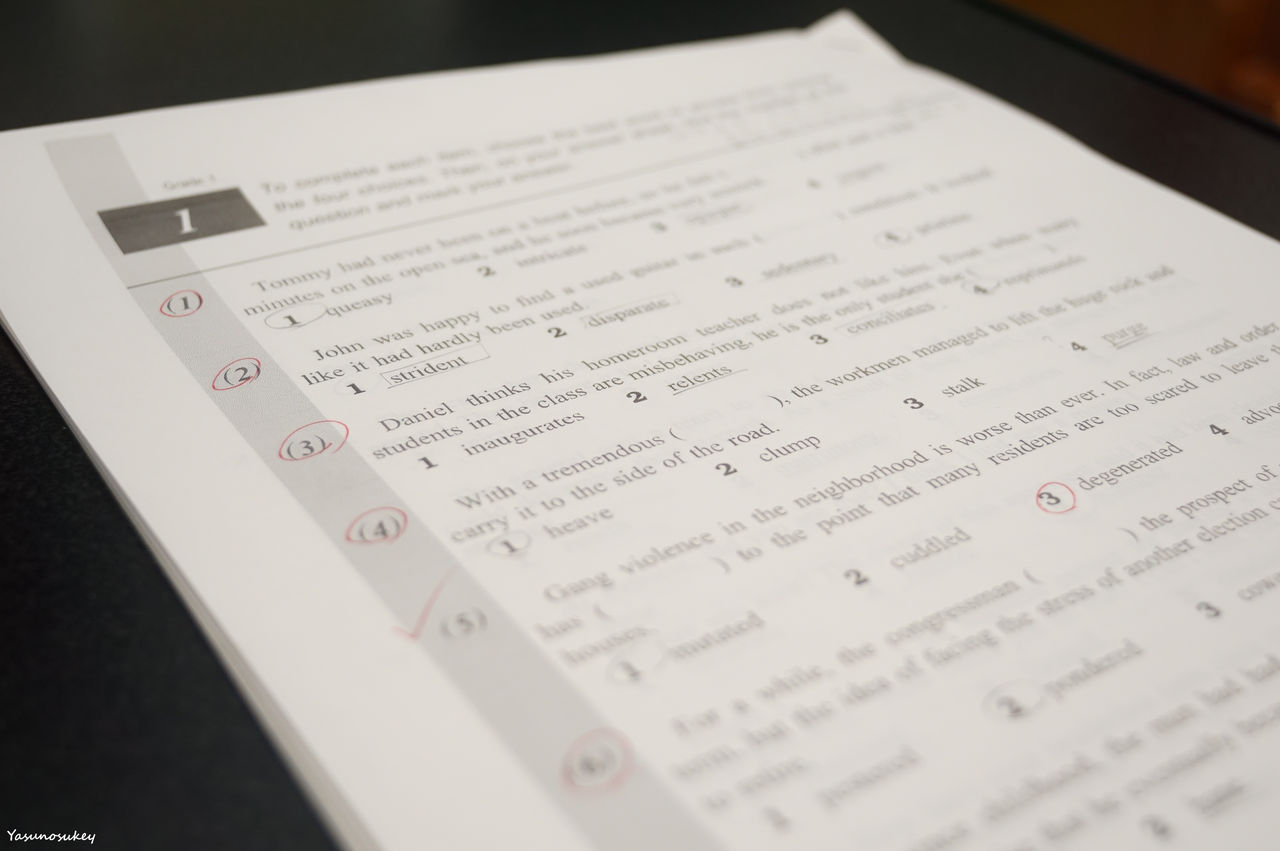 Grade 1
1
To complete each item, choose the best word or phrase from among
the four choices. Then, on your answer sheet, find the number of the
question and mark your answer.
(1) Tommy had never been on a boat before, so he felt (
minutes on the open sea, and he soon became very
1 queasy 2 intricate 3 4
(2) John was happy to find a used guitar in such ( ) condition. It looked
like it had hardly been used.
1 strident 2 disparate 3 sedentary 4 pristine
(3) Daniel thinks his homeroom teacher does not like him. Even when many
students in the class are misbehaving, he is the only student she ( ).
1 inaugurates 2 relents 3 conciliates 4 reprimands
(4) With a tremendous ( ), the workmen managed to lift the huge rock and
carry it to the side of the road.
1 heave 2 clump 3 stalk 4 purge
(5) Gang violence in the neighborhood is worse than ever. In fact, law and order
has ( ) to the point that many residents are too scared to leave
houses.
1 mutated 2 cuddled 3 degenerated 4
(6) For a while, the congressman ( ) the prospect of
term, but the idea of facing the stress of another election
to retire.
1 2 pondered 3
childhood, the man had had
that he eventually
2
Yasunosukey